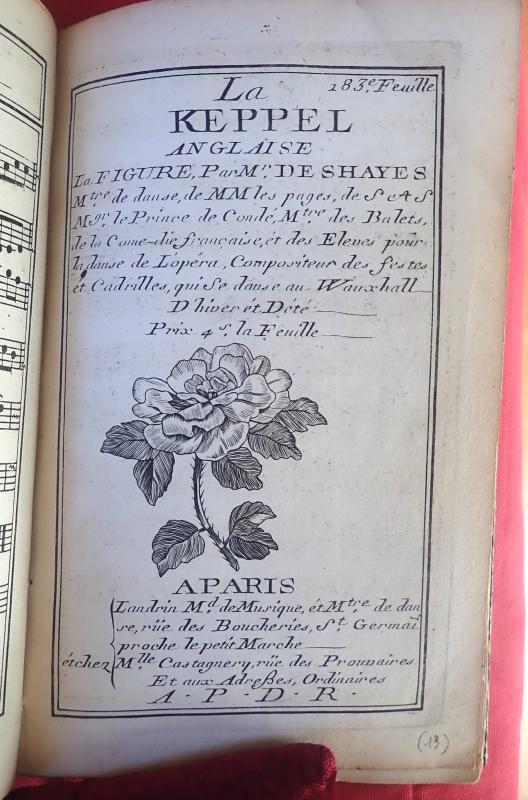 183.e Feuille
La
KEPPEL
ANGLAISE
La FIGURE, Par Mr. DESHAYES
Mtre de danse, de MM les pages, de S A S
Mgr. le Prince de Condé, Mtre des Balets,
de la Come-die française, ét des Eleves pour
la danse de L'opéra, Compositeur des festes
et Cadrilles, qui Se danse au Wauxhall
D'hiver ét Dété
Prix 4 s. la Feuille
A PARIS
Landrin Md. de Musique, ét Mtre de dan
se, rüe des Boucheries, St. Germai
proche le petit Marche
étchez Mlle Castagnery, rüe des Prouvaires
Et aux Adreßes, Ordinaires
A. P. D. R.
(13)